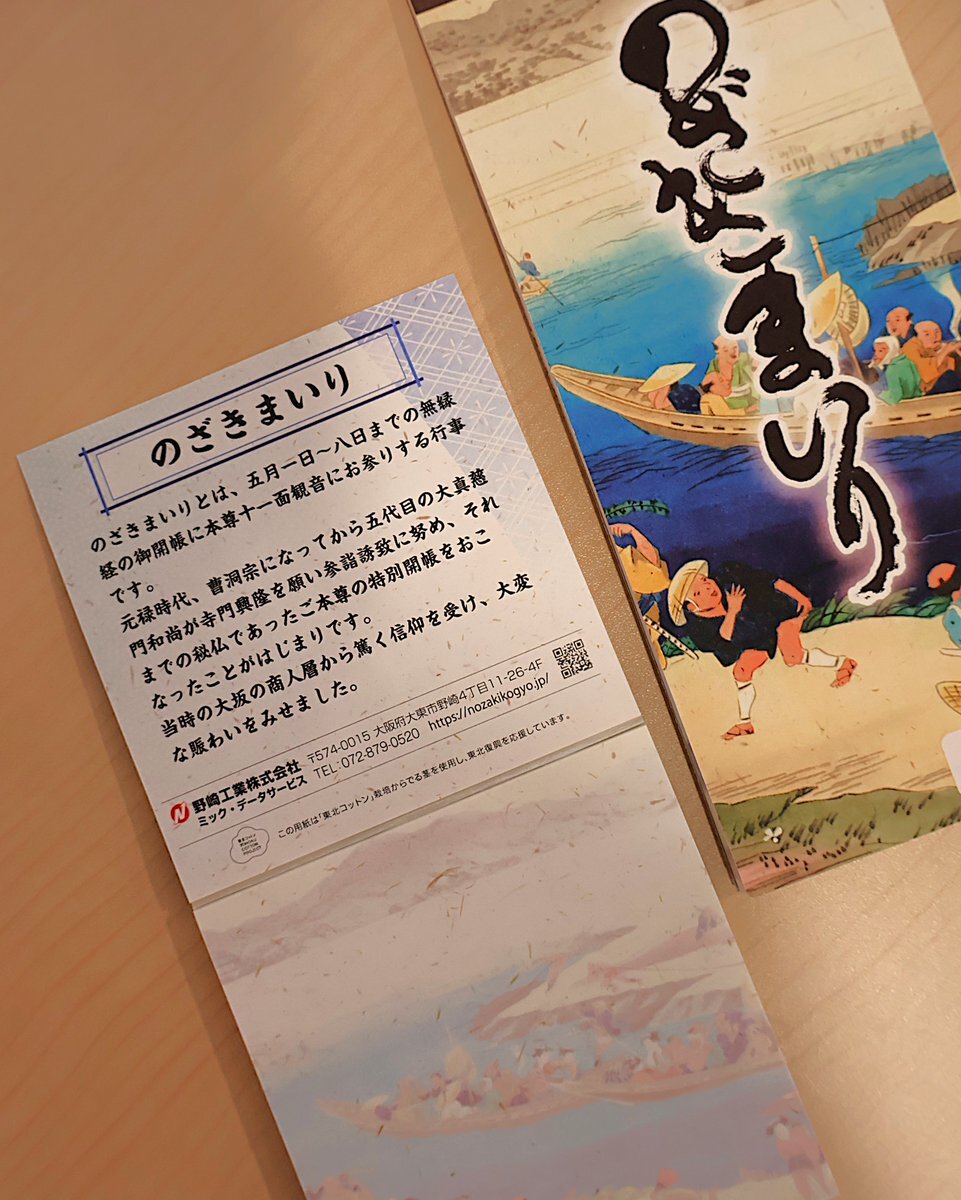 のざきまいり
のざきまいり
のざきまいりとは、五月一日~八日までの無縁
経の御開帳に本尊十一面観音にお参りする行事
です。
元禄時代、曹洞宗になってから五代目の大真慈
門和尚が寺門興隆を願い参詣誘致に努め、それ
までの秘仏であったご本尊の特別開帳をおこ
なったことがはじまりです。
当時の大坂の商人層から篤く信仰を受け、大変
な賑わいをみせました。
野崎工業株式会社
ミック・データサービス
〒574-0015 大阪府大東市野崎4丁目11-26-4F
TEL:072-879-0520 https://nozakikogyo.jp/
この用紙は「東北コットン」栽培からでる茎を使用し、東北復興を応援しています。